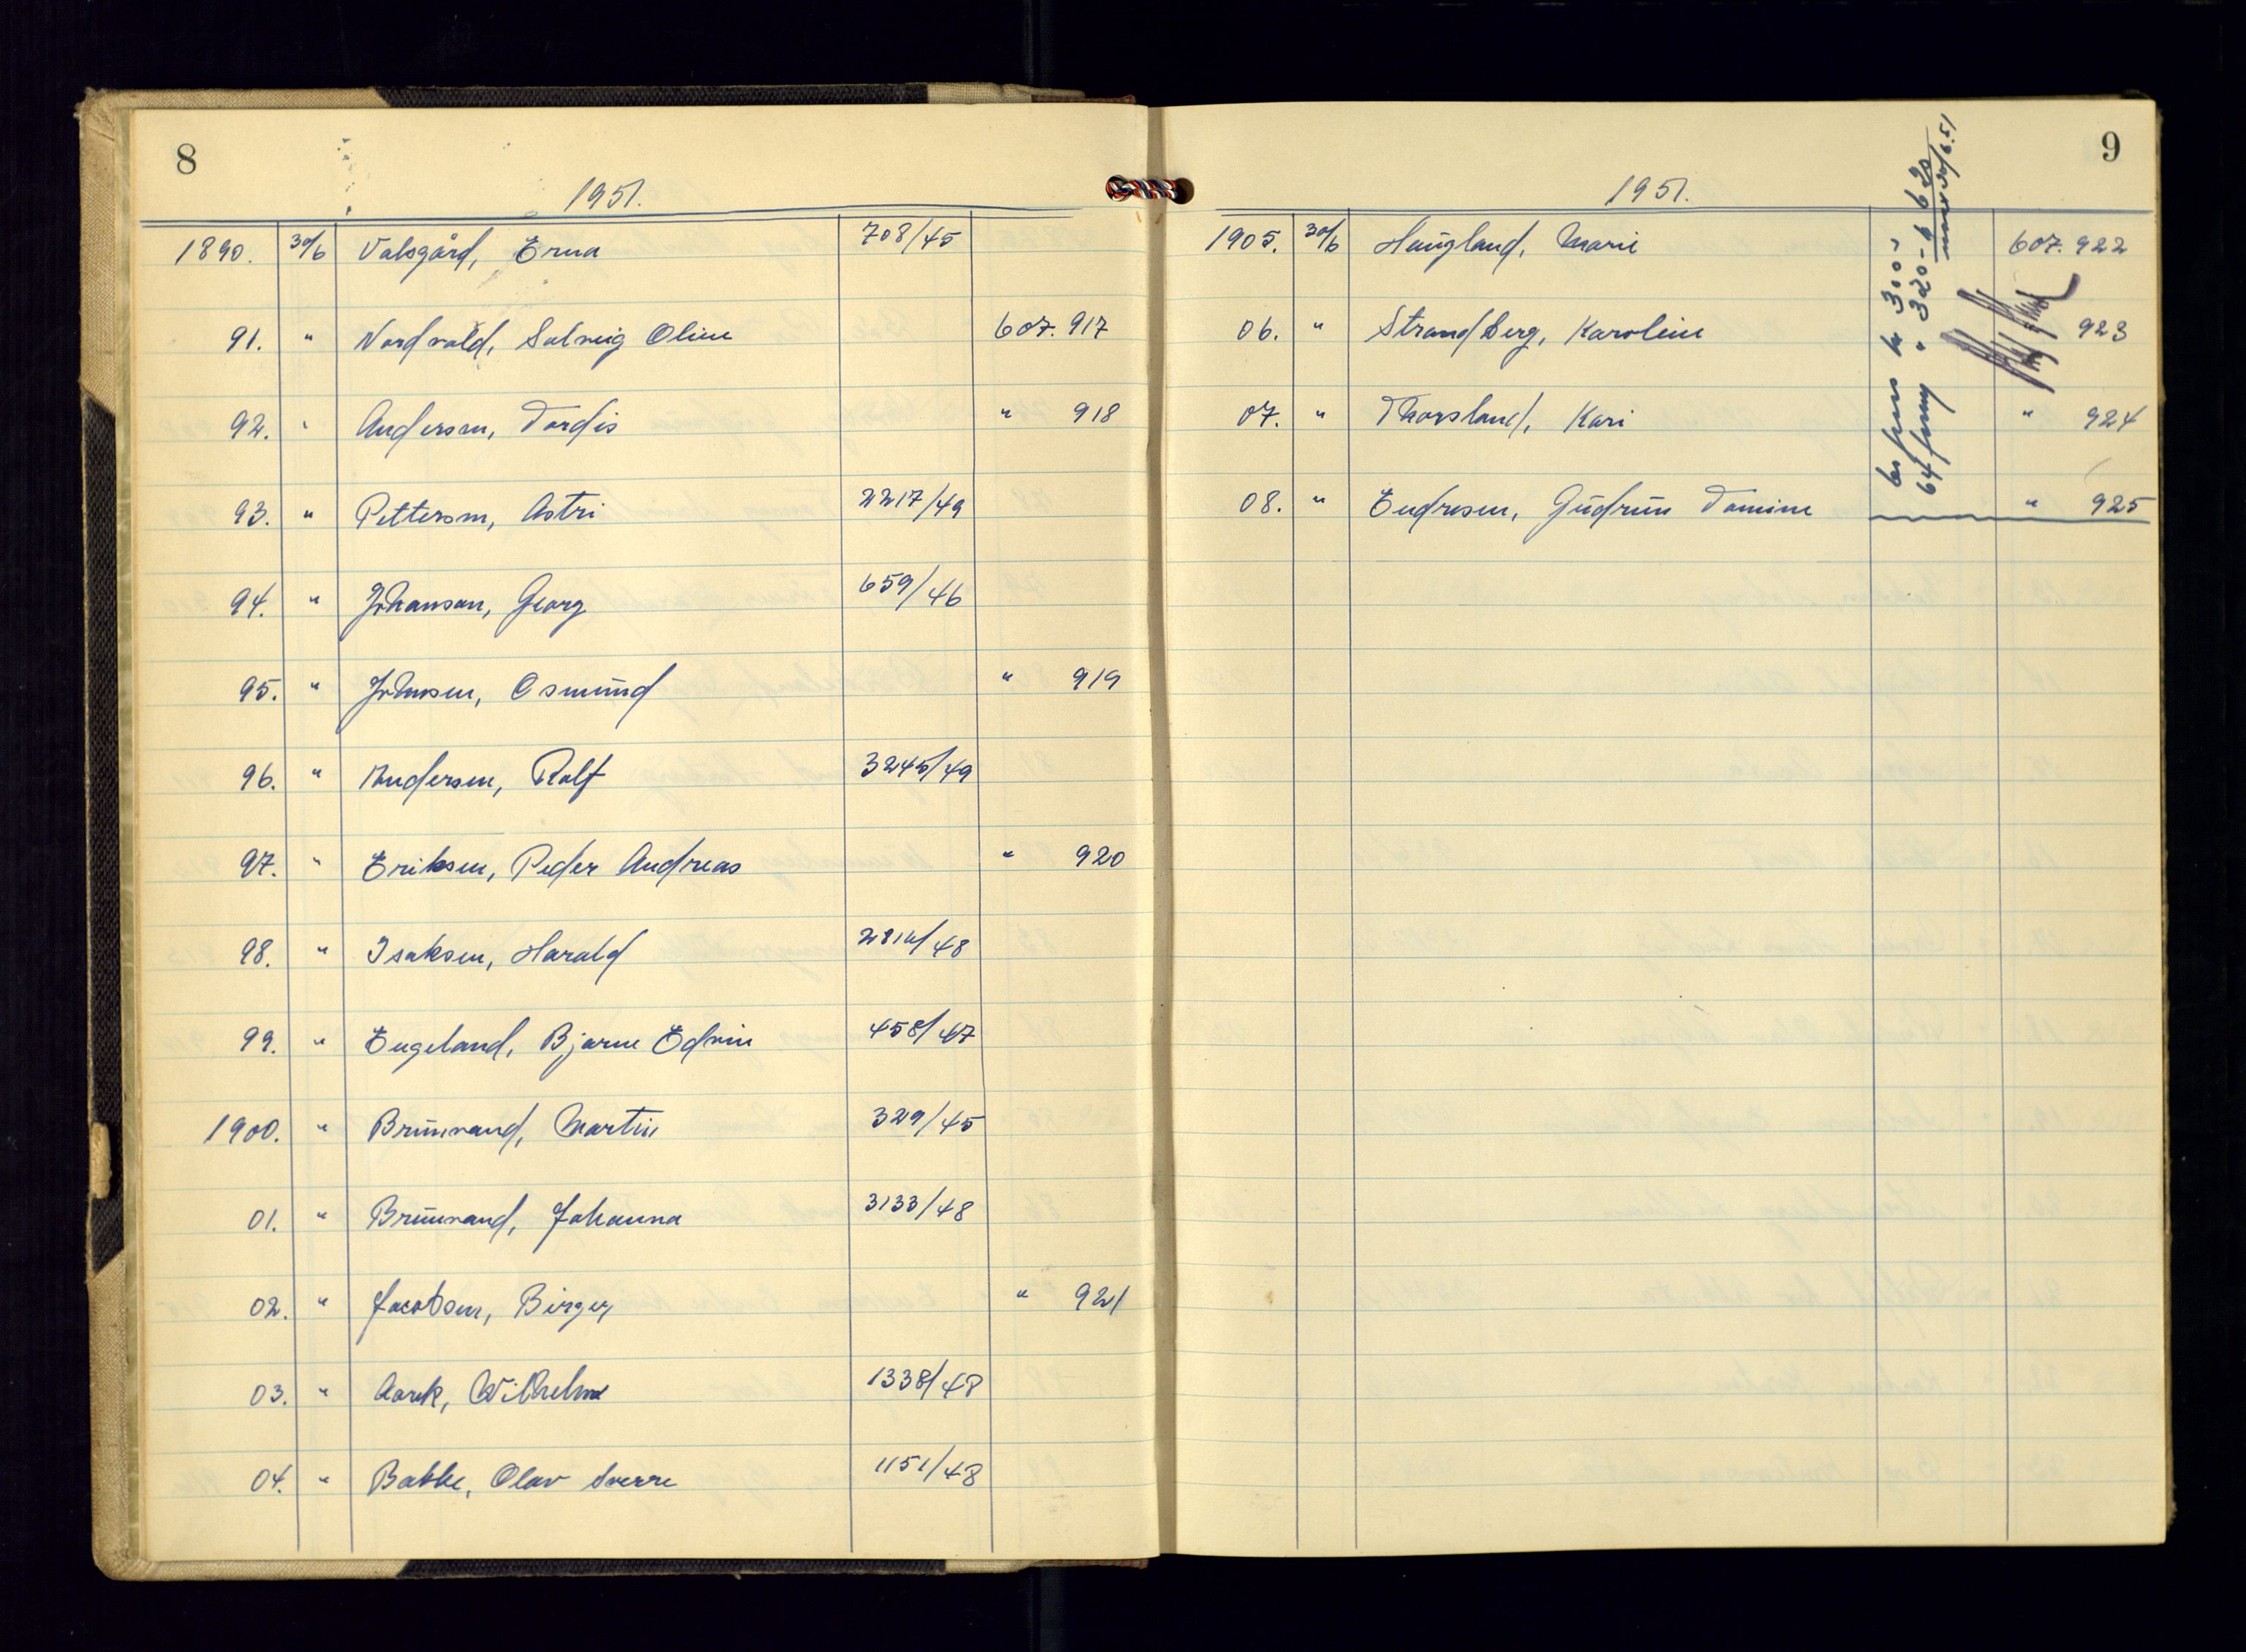 8
1951.
1890. 30/6 Valsgård, Erna 708/45
91. " Nordvald, Solveig Oline 607.917
92. " Andersen, Tordis " 918
93. " Pettersen, Astri 2217/49
94. " Johansen, Georg 659/46
95. " Johnsen, Osmund " 919
96. " Andersen, Rolf 3245/49
97. " Eriksen, Peder Andreas " 920
98. " Isaksen, Harald /48
99. " Engeland, Bjarne Edvin 458/47
1900. " Brunvand, Martin 329/45
01. " Brunvand, Johanna 3133/48
02. " Jacobsen, Birger " 921
03. " Aarek, Wilhelm 1338/48
04. " Bakke, Olav Sverre 1151/48
9
1951.
1905. 30/6 Haugland, Marie 607.922
06. " Strandberg, Karoline 923
07. " Thorsland, Kari " 924
08. " Endresen, Gudrun Tomine " 925
kr 300-
64 " 320- 620
30/6.51